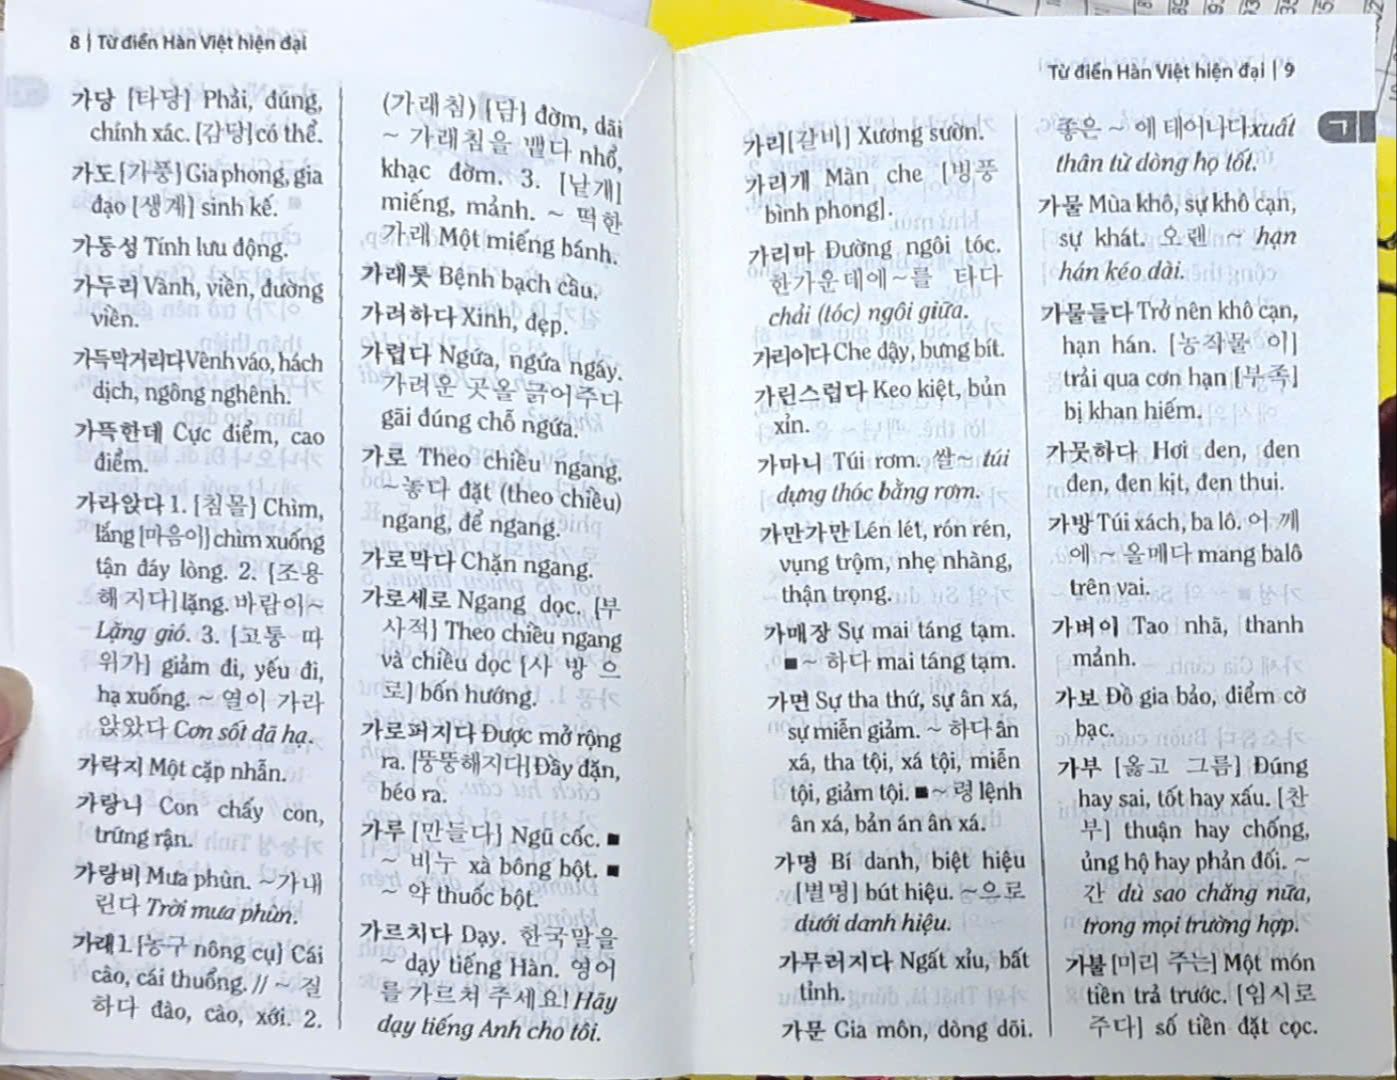 8 | Từ điển Hàn Việt hiện đại
가당 [타당] Phải, đúng,
chính xác. [감당] có thể.
가도 [가풍] Gia phong, gia
đạo [생계] sinh kế.
가동성 Tính lưu động.
가두리 Vành, viền, đường
viền.
가득막거리다 Vênh váo, hách
dịch, ngông nghênh.
가뜩한데 Cực điểm, cao
điểm.
가라앉다 1. [침몰] Chìm,
lắng [마음이] chìm xuống
tận đáy lòng. 2. [조용
해 지다] lặng. 바람이 ~
Lặng gió. 3. [고통 따
위가] giảm đi, yếu đi,
hạ xuống. ~ 열이 가라
앉았다 Cơn sốt đã hạ.
가락지 Một cặp nhẫn.
가랑니 Con chấy con,
trứng rận.
가랑비 Mưa phùn. ~가 내
린다 Trời mưa phùn.
가래 1. [농구 nông cụ] Cái
cào, cái thuổng. // ~ 질
하다 đào, cào, xới. 2.
(가래침) [담] đờm, dãi
~ 가래침을 뱉다 nhổ,
khạc đờm. 3. [낱개]
miếng, mảnh. ~ 떡한
가래 Một miếng bánh.
가래톳 Bệnh bạch cầu.
가려하다 Xinh, đẹp.
가렵다 Ngứa, ngứa ngáy.
가려운 곳을 긁어주다
gãi đúng chỗ ngứa.
가로 Theo chiều ngang.
~ 놓다 đặt (theo chiều)
ngang, để ngang.
가로막다 Chặn ngang.
가로세로 Ngang dọc. [부
사적] Theo chiều ngang
và chiều dọc [사 방 으
로] bốn hướng.
가로퍼지다 Được mở rộng
ra. [뚱뚱해지다] Đầy đặn,
béo ra.
가루 [만들다] Ngũ cốc. ■
~ 비누 xà bông bột. ■
~ 약 thuốc bột.
가르치다 Dạy. 한국말을
~ dạy tiếng Hàn. 영어
를 가르쳐 주세요! Hãy
dạy tiếng Anh cho tôi.
Từ điển Hàn Việt hiện đại | 9
ㄱ
가리 [갈비] Xương sườn.
가리개 Màn che [병풍
bình phong].
가리마 Đường ngôi tóc.
한가운데에 ~를 타다
chải (tóc) ngôi giữa.
가리이다 Che đậy, bưng bít.
가린스럽다 Keo kiệt, bủn
xỉn.
가마니 Túi rơm. 쌀 ~ túi
đựng thóc bằng rơm.
가만가만 Lén lét, rón rén,
vụng trộm, nhẹ nhàng,
thận trọng.
가매장 Sự mai táng tạm.
■ ~ 하다 mai táng tạm.
가면 Sự tha thứ, sự ân xá,
sự miễn giảm. ~ 하다 ân
xá, tha tội, xá tội, miễn
tội, giảm tội. ■ ~ 령 lệnh
ân xá, bản án ân xá.
가명 Bí danh, biệt hiệu
[별명] bút hiệu. ~으로
dưới danh hiệu.
가무러지다 Ngất xỉu, bất
tỉnh.
가문 Gia môn, dòng dõi.
좋은 ~ 에 태어나다 xuất
thân từ dòng họ tốt.
가물 Mùa khô, sự khô cạn,
sự khát. 오랜 ~ hạn
hán kéo dài.
가물들다 Trở nên khô cạn,
hạn hán. [농작물 이]
trải qua cơn hạn [부족]
bị khan hiếm.
가뭇하다 Hơi đen, đen
đen, đen kịt, đen thui.
가방 Túi xách, ba lô. 어 깨
에 ~ 올메다 mang balô
trên vai.
가벼이 Tao nhã, thanh
mảnh.
가보 Đồ gia bảo, điểm cờ
bạc.
가부 [옳고 그름] Đúng
hay sai, tốt hay xấu. [찬
부] thuận hay chống,
ủng hộ hay phản đối. ~
간 dù sao chăng nữa,
trong mọi trường hợp.
가불 [미리 주는] Một món
tiền trả trước. [임시로
주다] số tiền đặt cọc.